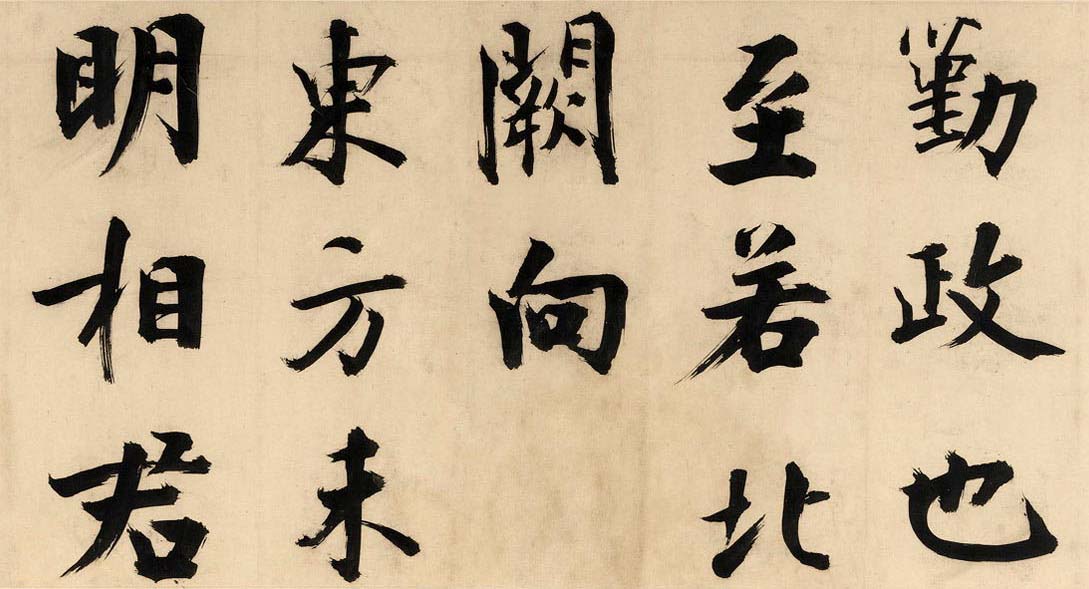 勤政也
至若北
闕向
東方未
明相君